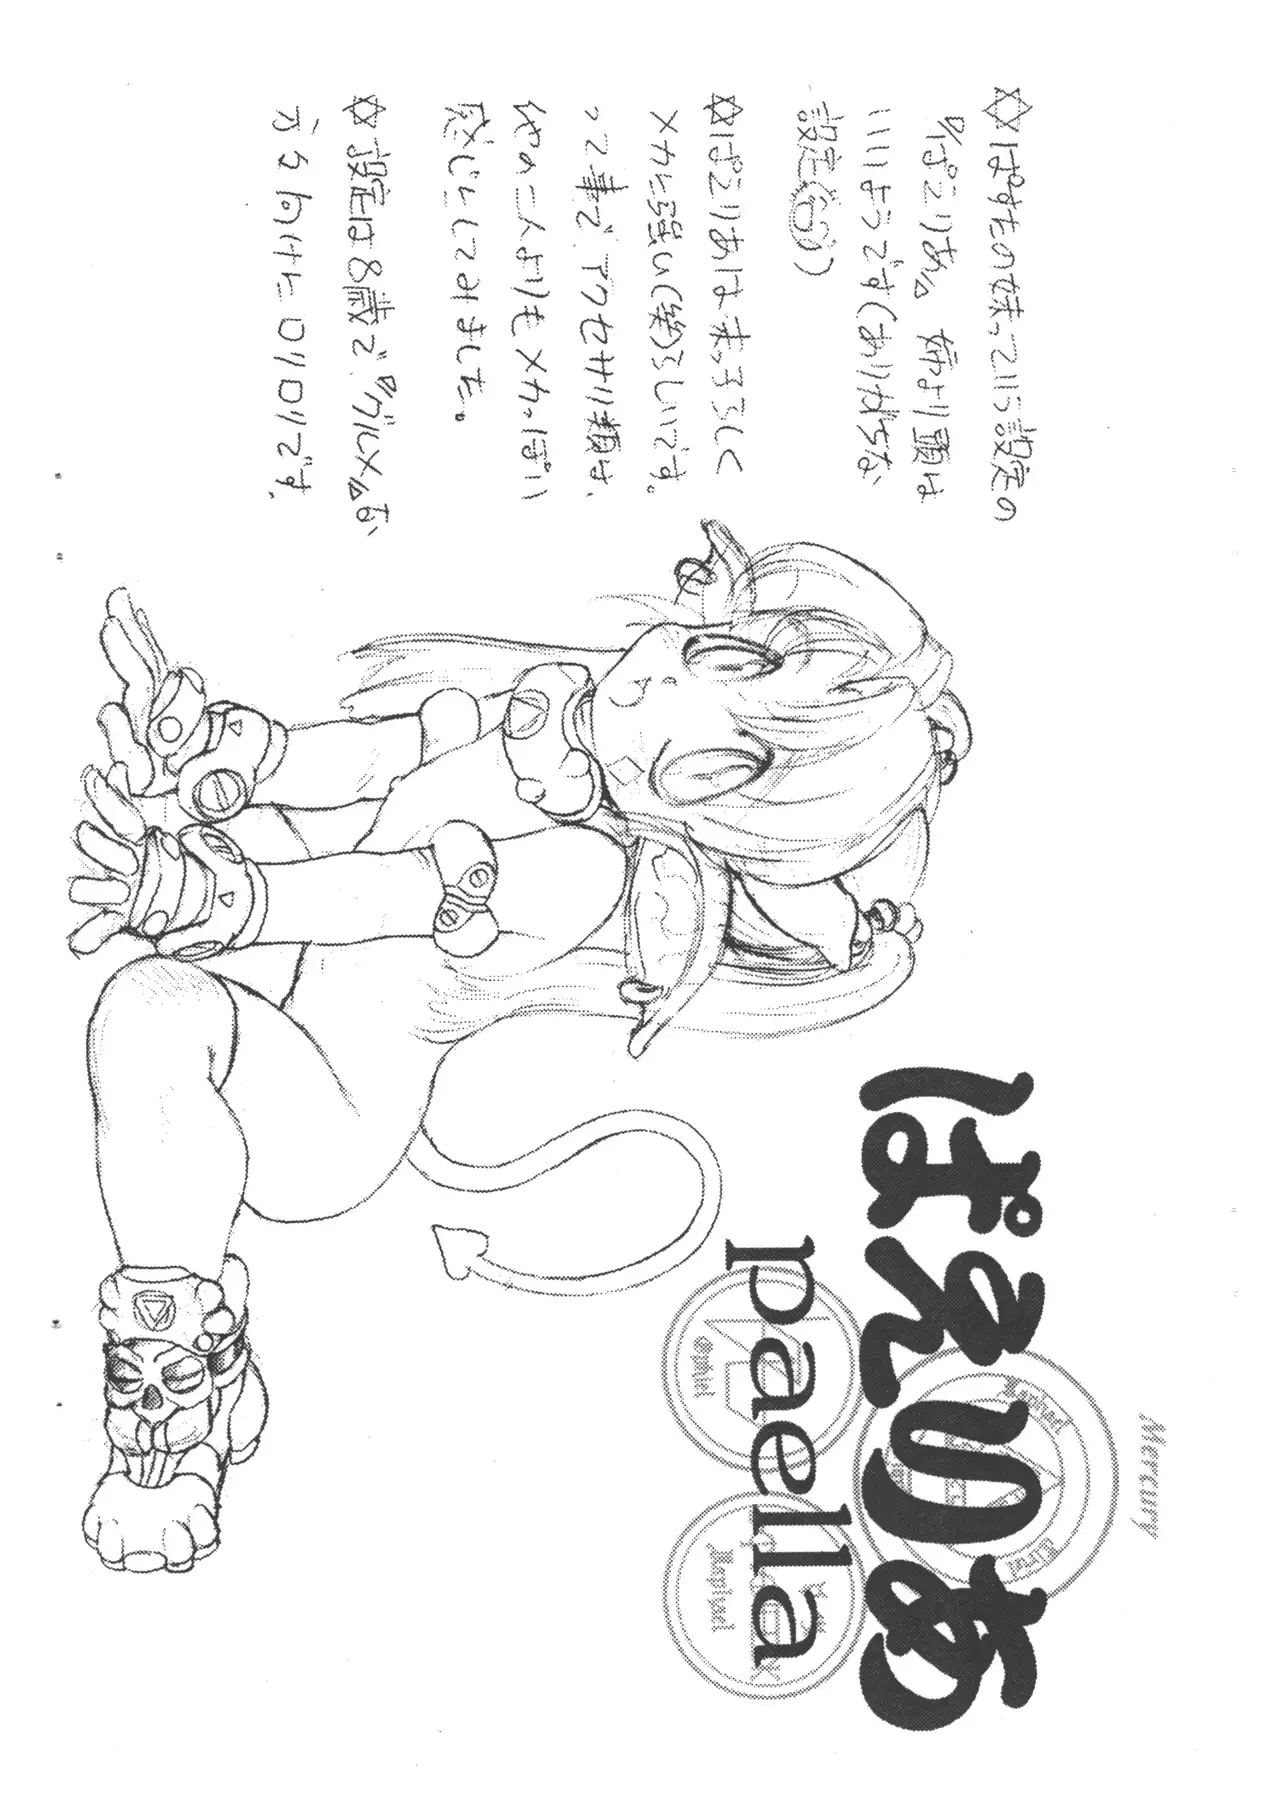 ☆ぱすたの妹っていう設定の
『ぱえりあ』 姉より頭は
いいようです(ありがちな
設定(笑))
☆ぱえりあは まっるっしく
メカに強い(笑)らしいです。
って事で、アクセサリ類は、
他の二人よりもメカっぽい
感じにしてみました。
☆設定は8歳で、『グルメ』な
方々向けにロリロリです。
ぱえりあ
paella
Mercury
Ophiel